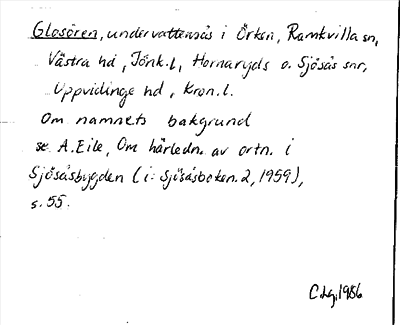 Glosören, undervattensås i Örken, Ramkvilla sn,
Västra hd, Jönk.l, Hornaryds o. Sjösås snr,
Uppvidinge hd, Kron.l.
Om namnets bakgrund
se A.Eile, Om härledn. av ortn. i
Sjösåsbygden (i: Sjösåsboken.2, 1959),
s.55.
CLg,1986